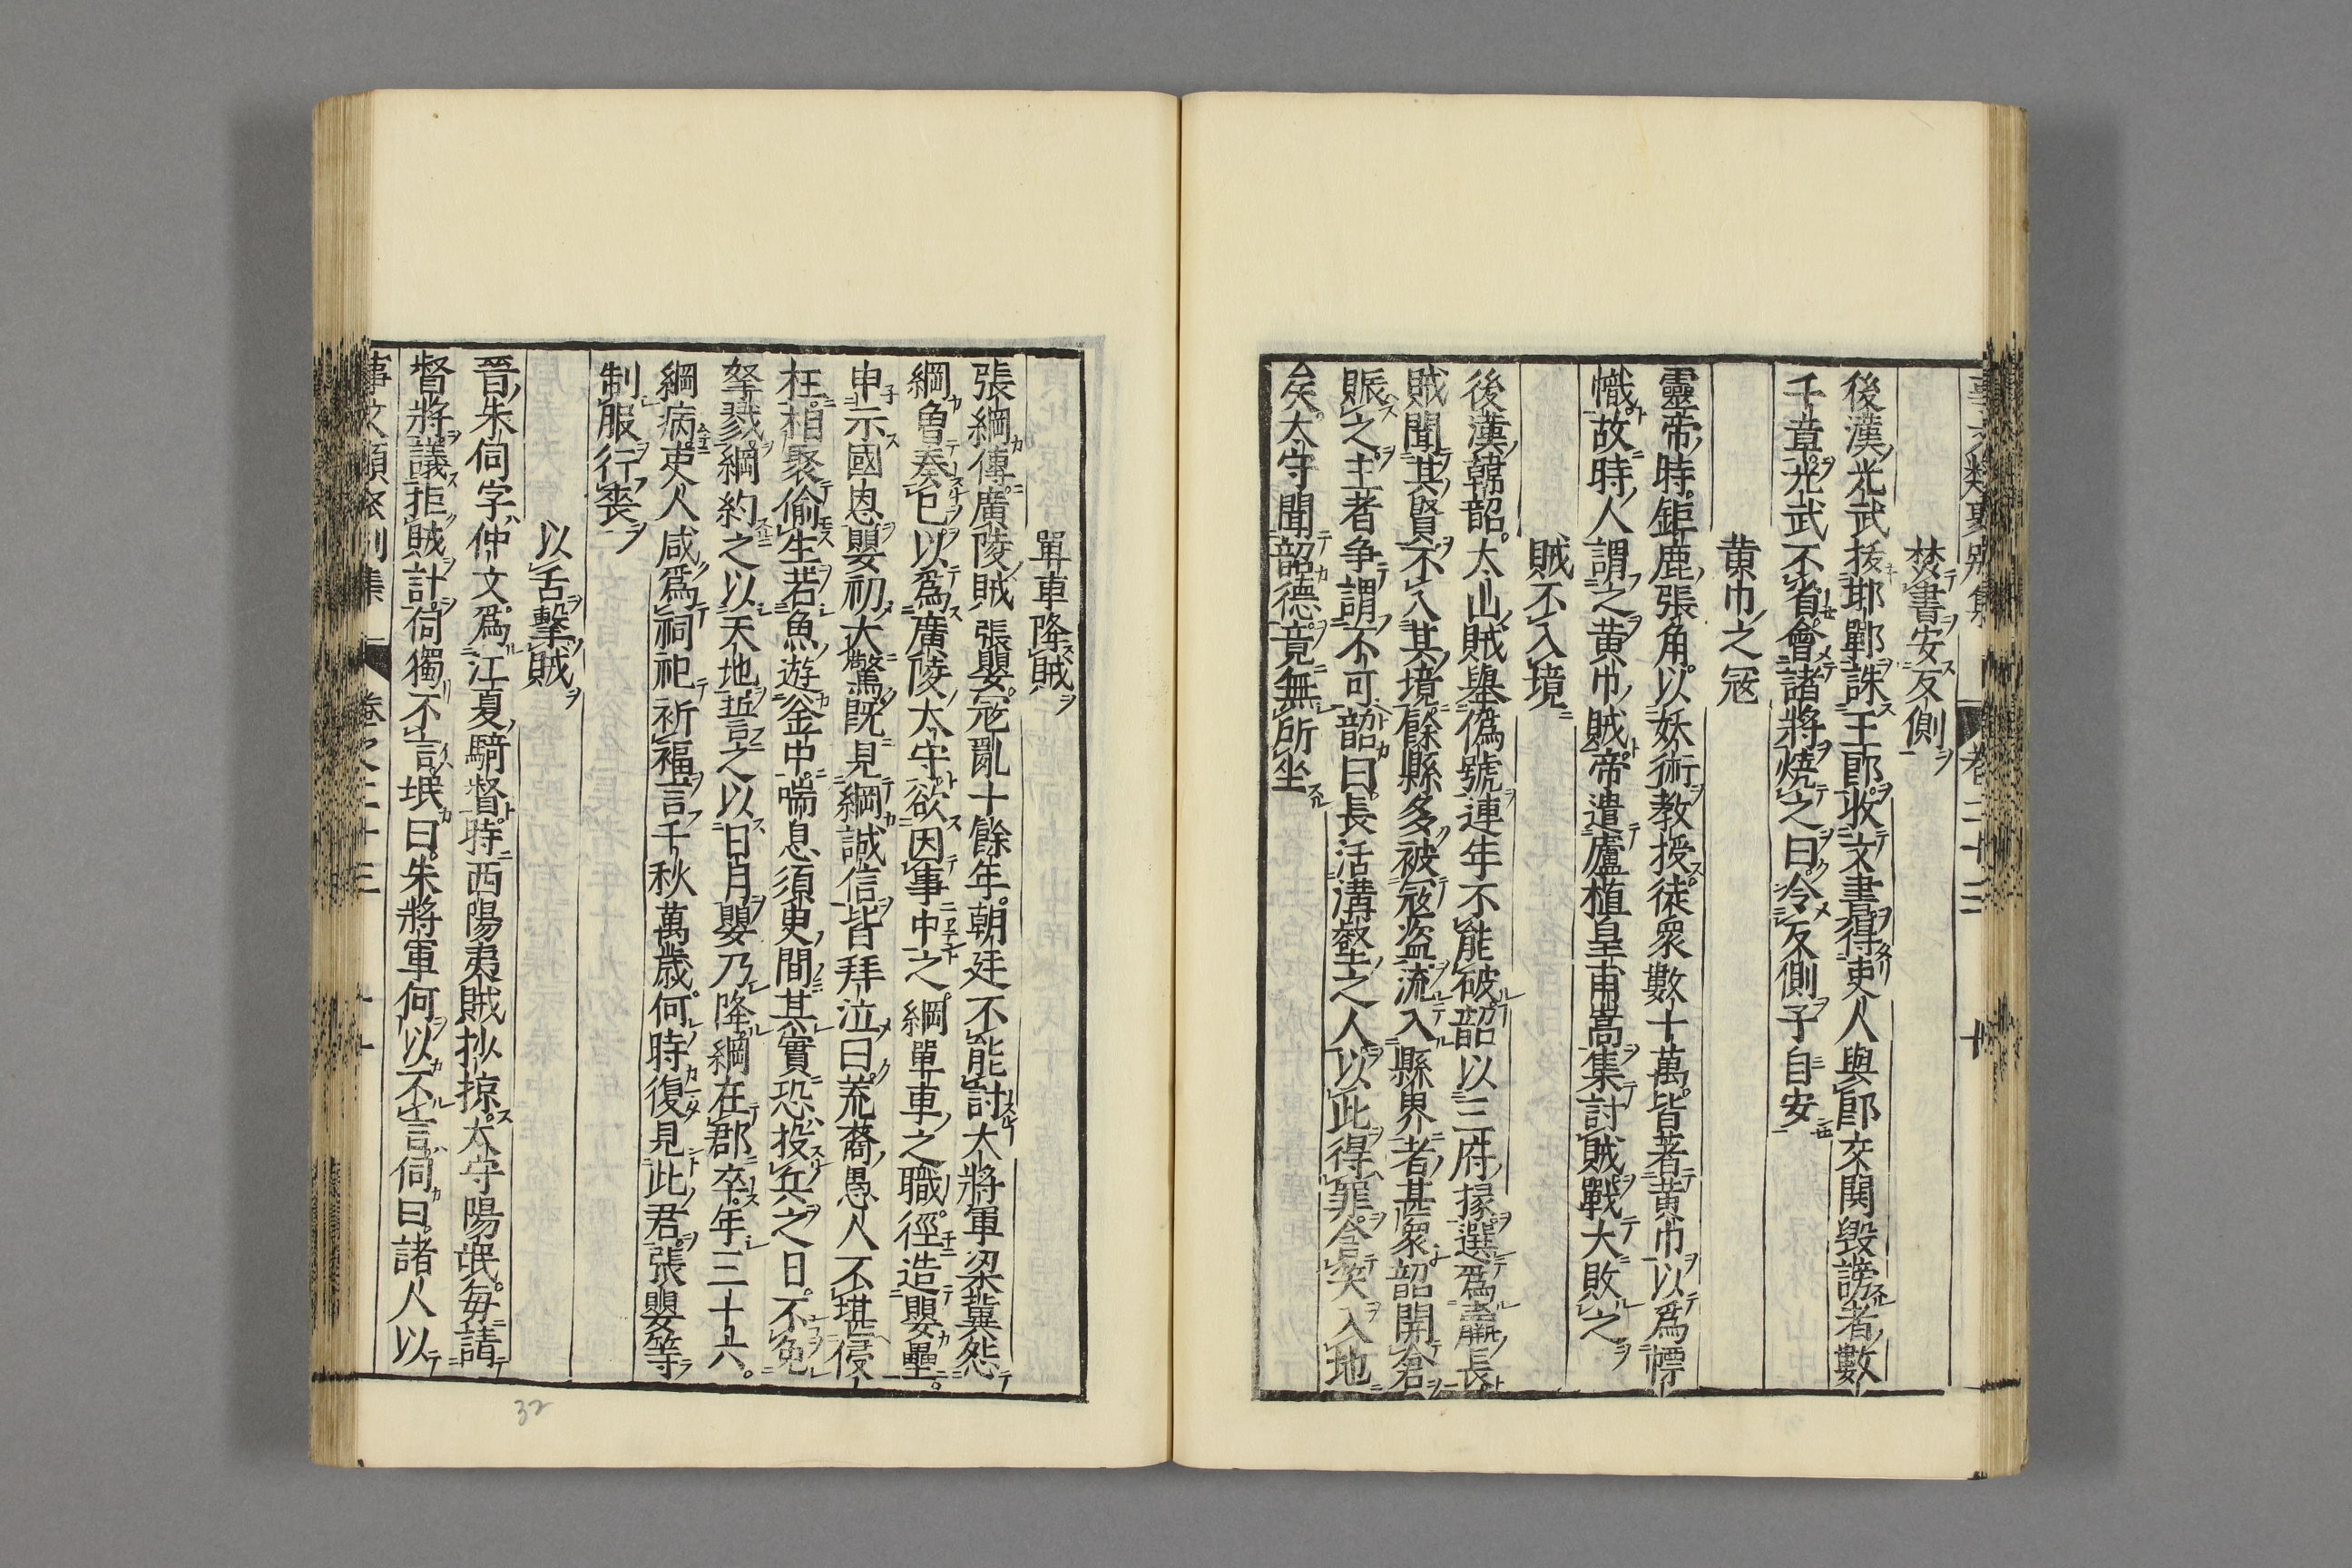 焚書安反側
後漢光武拔邯鄲誅王郎收文書得吏人與郎交関毀謗者數
千章光武不省會諸將燒之曰令反側子自安
黄巾之冦
靈帝時鉅鹿張角以妖術教授徒衆數十萬皆著黄巾以爲標
幟故時人謂之黄巾賊帝遣盧植皇甫嵩集討賊戰大敗之
賊不入境
後漢韓韶太山賊舉僞號連年不能破韶以三府掾選爲嬴長
賊聞其賢不入其境餘縣多被冦盗流入縣界者甚衆韶開倉
賑之主者争謂不可韶曰長活溝壑之人以此得罪含笑入地
矣太守聞韶德竟無所坐
單車降賊
張綱傳廣陵賊張嬰冦亂十餘年朝廷不能討大將軍梁冀怨
綱曽奏已以爲廣陵太守欲因事中之綱單車之職徑造嬰壘
申示國恩嬰初大驚既見綱誠信皆拜泣曰荒裔愚人不堪侵
枉相聚偷生若魚遊釜中喘息須臾間其實恐投兵之日不免
孥戮綱約之以天地誓之以日月嬰乃降綱在郡卒年三十六
綱病吏人咸爲祠祀祈福言千秋萬歳何時復見此君張嬰等
制服行喪
以舌擊賊
晉朱伺字仲文爲江夏騎督時西陽夷賊抄掠太守陽珉毎請
督將議拒賊計伺獨不言珉曰朱將軍何以不言伺曰諸人以